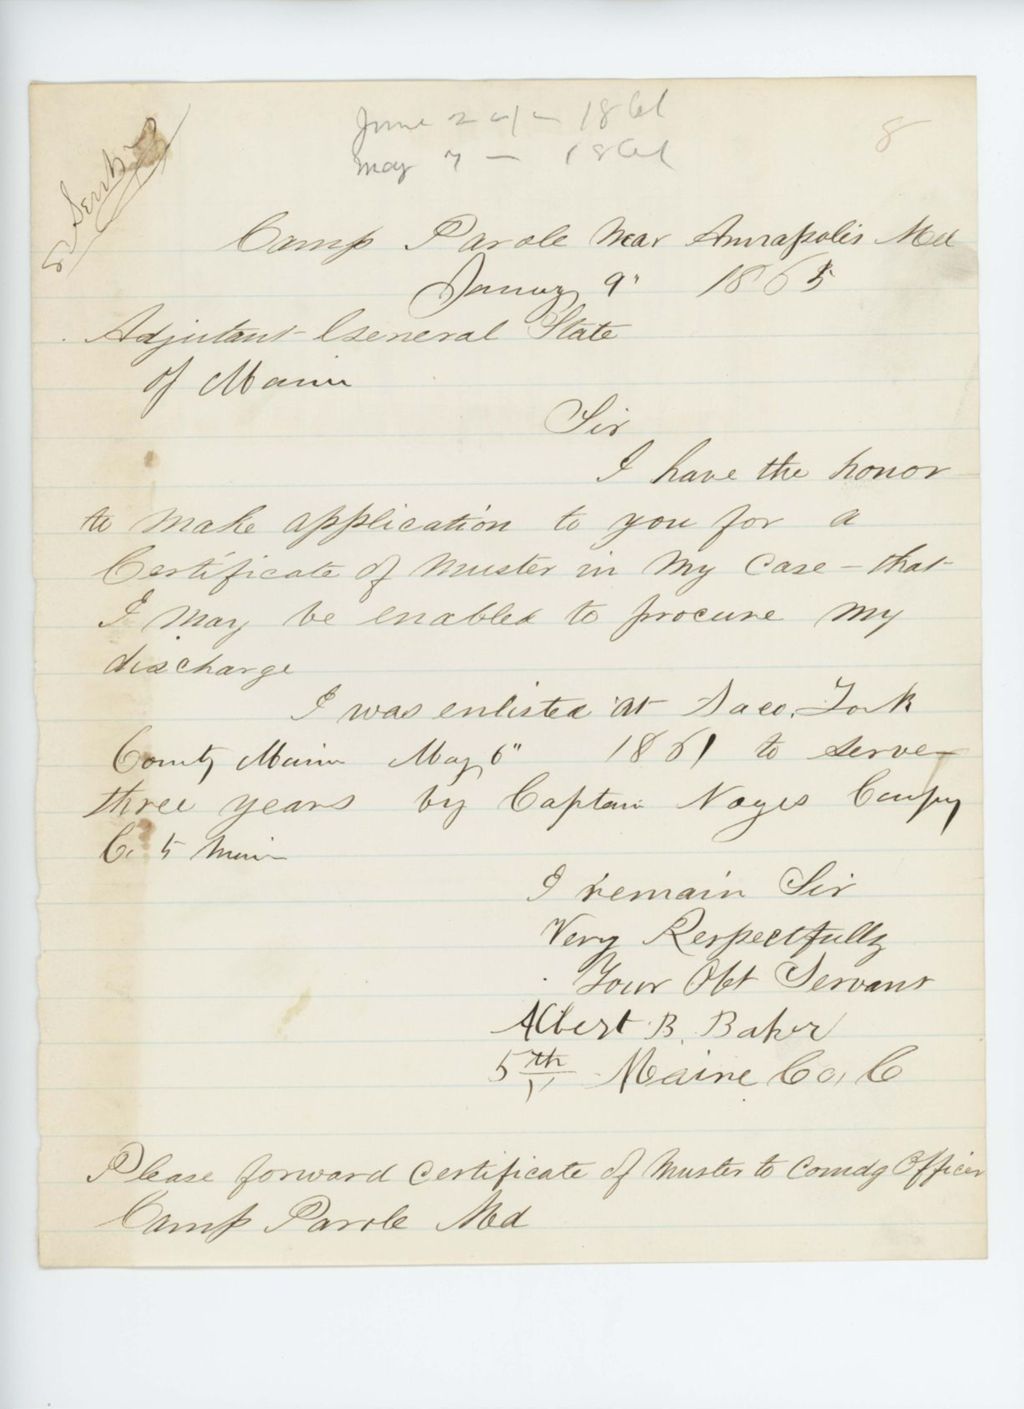 June 24 - 1861
May 7 - 1861
8
Camp Parole Near Annapolis Md
January 9" 1865
Adjutant General State
of Maine
Sir
I have the honor
to make application to you for a
Certificate of Muster in my case - that
I may be enabled to procure my
discharge
I was enlisted at Saco, York
County Maine May 6" 1861 to serve
three years by Captain Noyes Company
C. 5 Maine
I remain Sir
Very Respectfully
Your Obt Servant
Albert B. Baker
5th Maine Co, C
Please forward certificate of Muster to Comdg Officer
Camp Parole Md